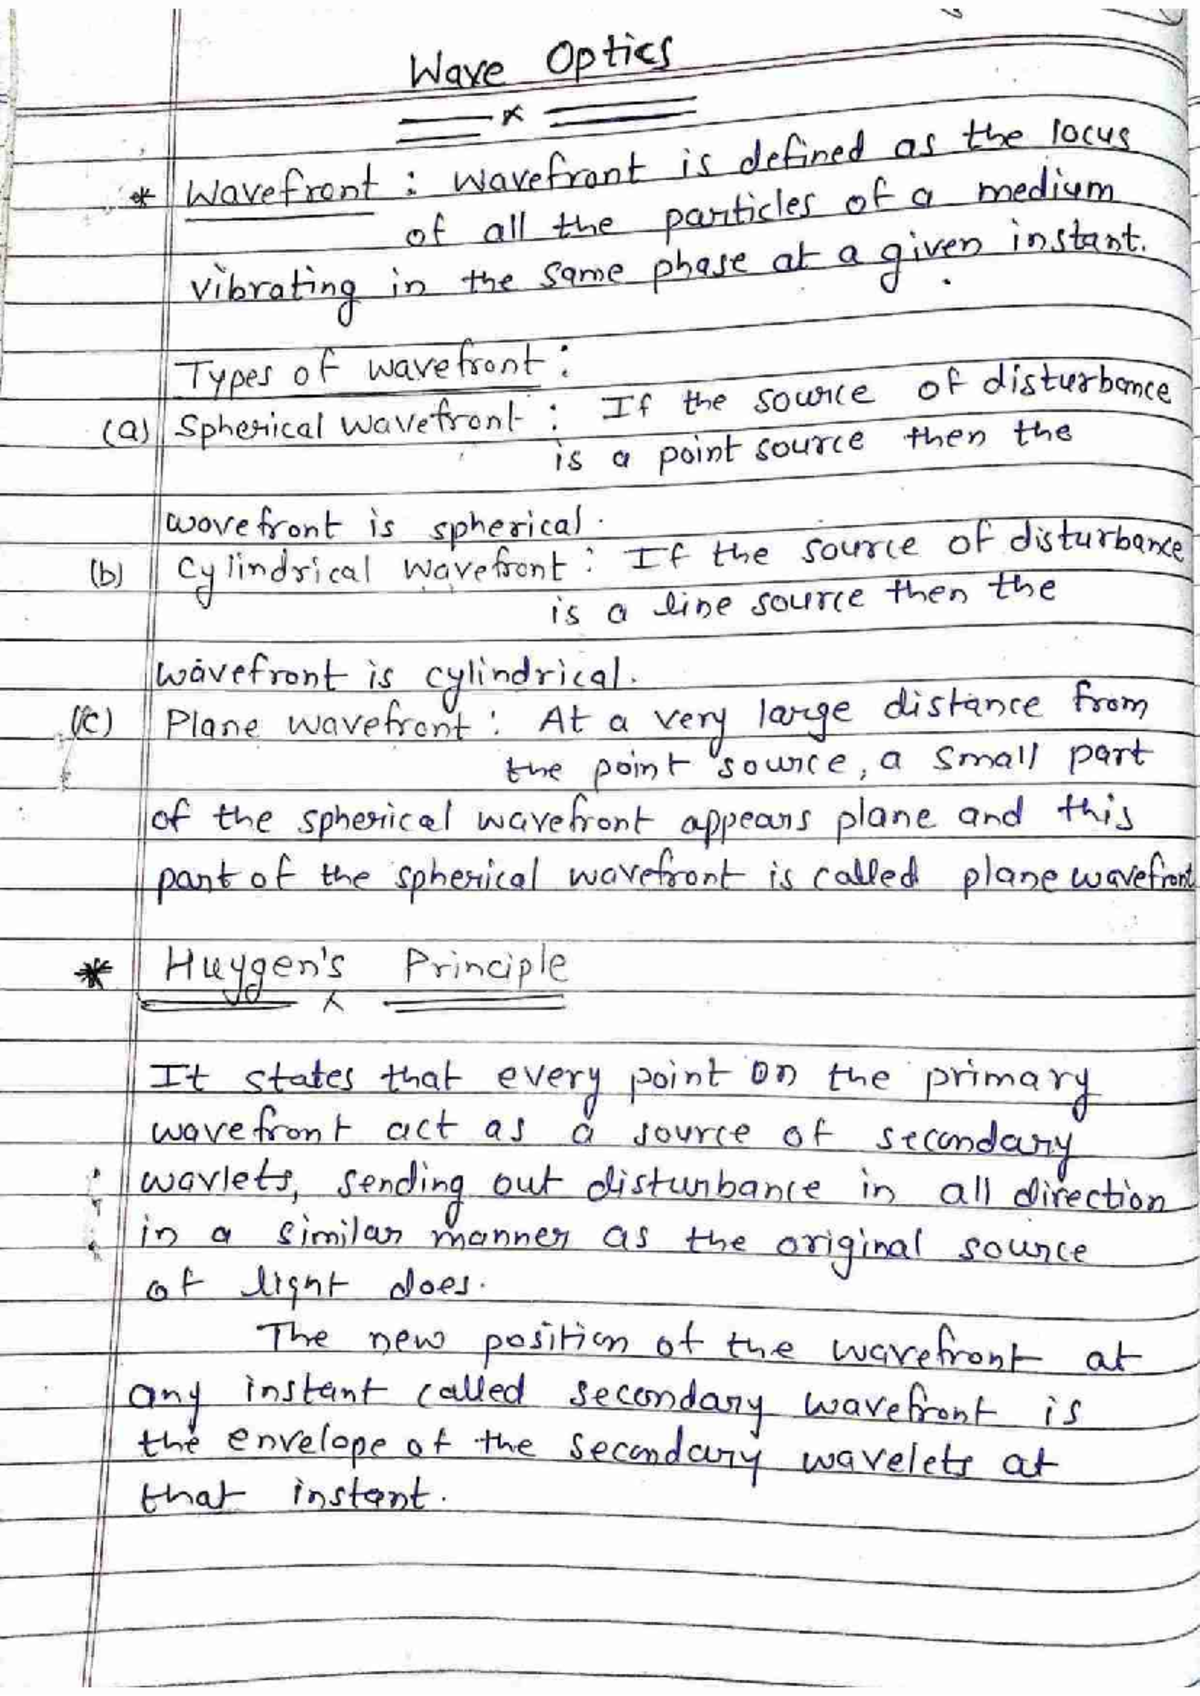 Wave Optics
* Wavefront : Wavefront is defined as the locus
of all the particles of a medium
vibrating in the same phase at a given instant.
Types of wavefront :
(a) Spherical wavefront : If the source of disturbance
is a point source then the
wavefront is spherical.
(b) Cylindrical wavefront : If the source of disturbance
is a line source then the
wavefront is cylindrical.
(c) Plane wavefront : At a very large distance from
the point source, a small part
of the spherical wavefront appears plane and this
part of the spherical wavefront is called plane wavefront
* Huygen's Principle
It states that every point on the primary
wavefront act as a source of secondary
wavlets, sending out disturbance in all direction
in a similar manner as the original source
of light does.
The new position of the wavefront at
any instant called secondary wavefront is
the envelope of the secondary wavelets at
that instant.